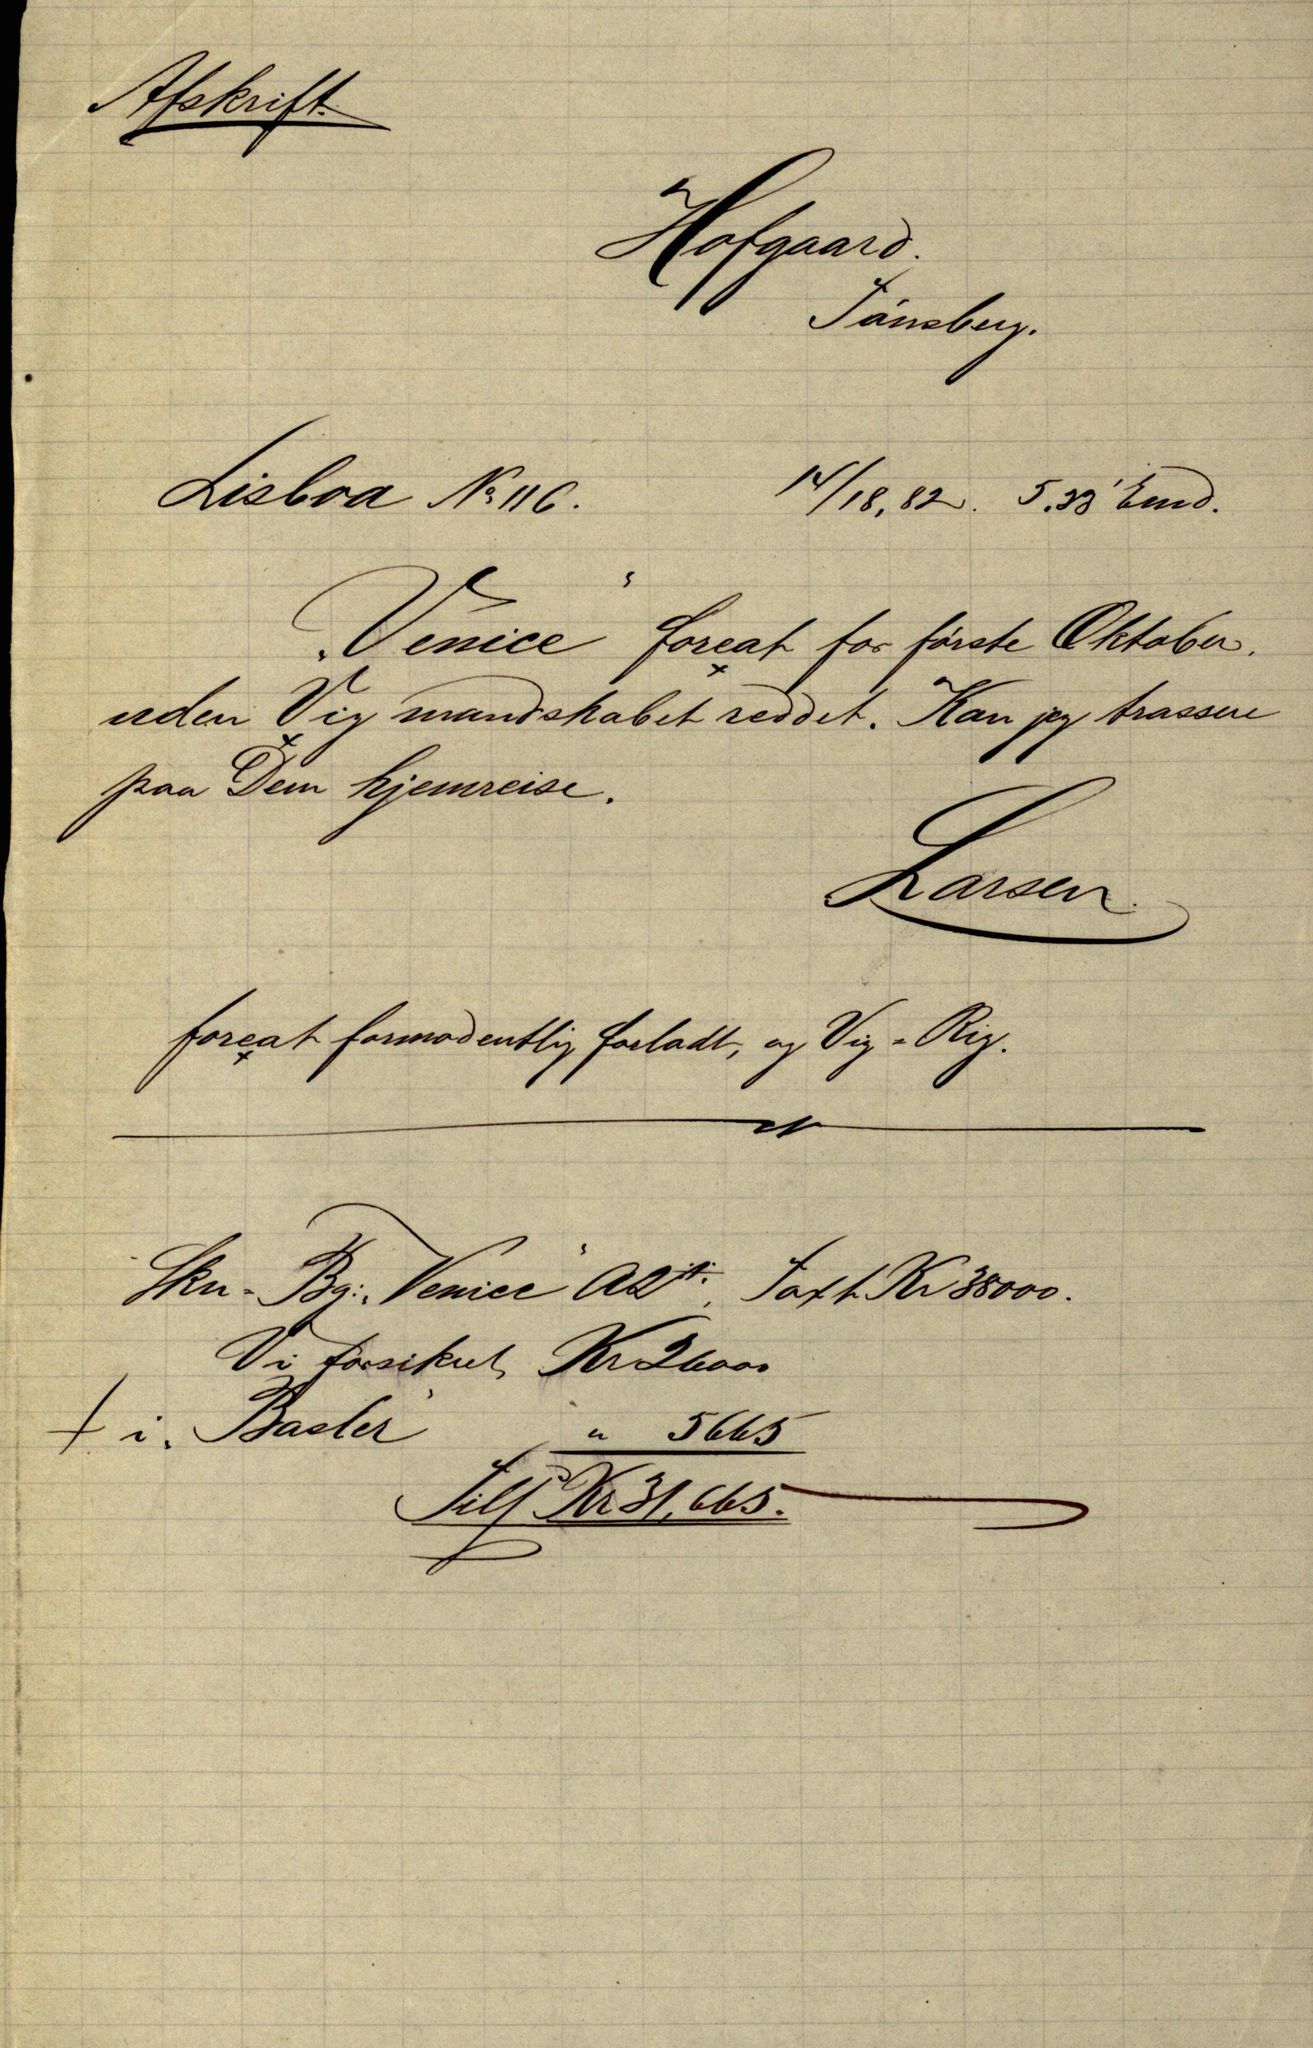 Afskrift.
Hofgaard.
Tönsberg.
Lisboa No 116. 14/18,82. 5.33' Emd.
"Venice" foreat for förste Oktober.
uden Vig mandskabet reddet. Kan jeg trassere
paa Dem hjemreise.
Larsen.
foreat formodentlig forladt, og Vig = Rig.
Skn-Bg: "Venice" A2 Taxt Kr 38000.
Vi forsikret Kr 26000
+ i "Basler" " 5665
Tils Kr 31,665.